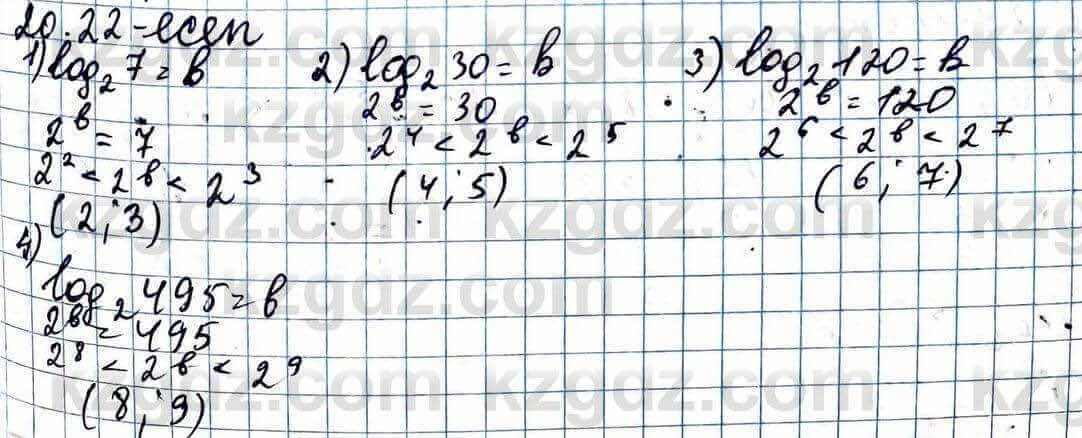 20.22-есеп
1) log₂ 7 = b
2ᵇ = 7
2² < 2ᵇ < 2³
(2; 3)
2) log₂ 30 = b
2ᵇ = 30
2⁴ < 2ᵇ < 2⁵
(4; 5)
3) log₂ 120 = b
2ᵇ = 120
2⁶ < 2ᵇ < 2⁷
(6; 7)
4)
log₂ 495 = b
2ᵇ = 495
2⁸ < 2ᵇ < 2⁹
(8; 9)
kzgdz.com